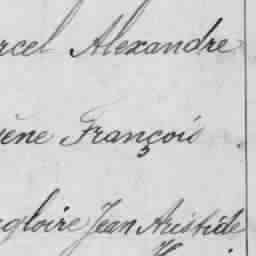 rcel Alexandre
ène François
gloire Jean Aristide